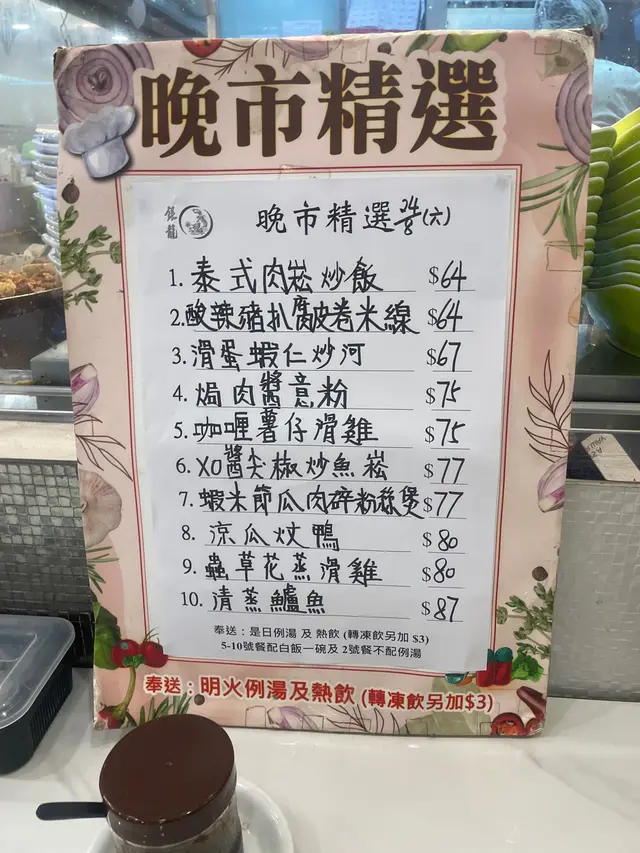 晚市精選
銀龍
晚市精選 24/8 (六)
1. 泰式肉崧炒飯 $64
2. 酸辣豬扒腐皮卷米線 $64
3. 滑蛋蝦仁炒河 $67
4. 焗肉醬意粉 $75
5. 咖喱薯仔滑雞 $75
6. XO醬尖椒炒魚崧 $77
7. 蝦米節瓜肉碎粉絲煲 $77
8. 涼瓜炆鴨 $80
9. 蟲草花蒸滑雞 $80
10. 清蒸鱸魚 $87
奉送：是日例湯 及 熱飲 (轉凍飲另加 $3)
5-10號餐配白飯一碗及 2號餐不配例湯
奉送：明火例湯及熱飲 (轉凍飲另加$3)